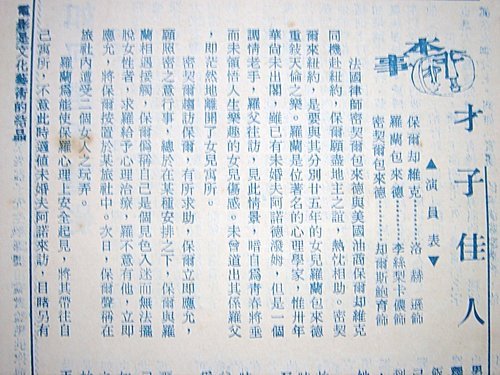 本事
才子佳人
▲演員表▼
保爾却維克………洛赫遜飾
羅蘭包來德………李絲梨卡儂飾
密契爾包來德……却爾斯鮑育飾
法國律師密契爾包來德與美國油商保爾却維克
同機赴紐約,保爾願盡地主之誼,熱忱相助。密契
爾來紐約,是要與其分別廿五年的女兒羅蘭包來德
重敍天倫之樂。羅蘭是位著名的心理學家,惟卅年
華尚未出閣,雖已有未婚夫阿諾德潑姆,但是一個
調情老手,羅父往訪,見此情景,暗自爲青春將垂
而未領悟人生樂趣的女兒傷感。未曾道出其係羅父
,即茫然地離開了女兒寓所。
密契爾趨訪保爾,有所求助,保爾立即應允,
願照密之意行事,總於在某種安排之下,保爾與羅
蘭相遇接觸,保爾僞稱自己是個見色入迷而無法擺
脫女性者,求羅給予心理治療,羅不意有他,立即
應允,將保爾按置於某旅社中。次日,保爾聲稱在
旅社內遭受二個女人之玩弄。
羅蘭爲能使保羅心理上安全起見,將其帶往自
己寓所,不意此時適值未婚夫阿諾來訪,目睹另有
電影是文化藝術的結晶